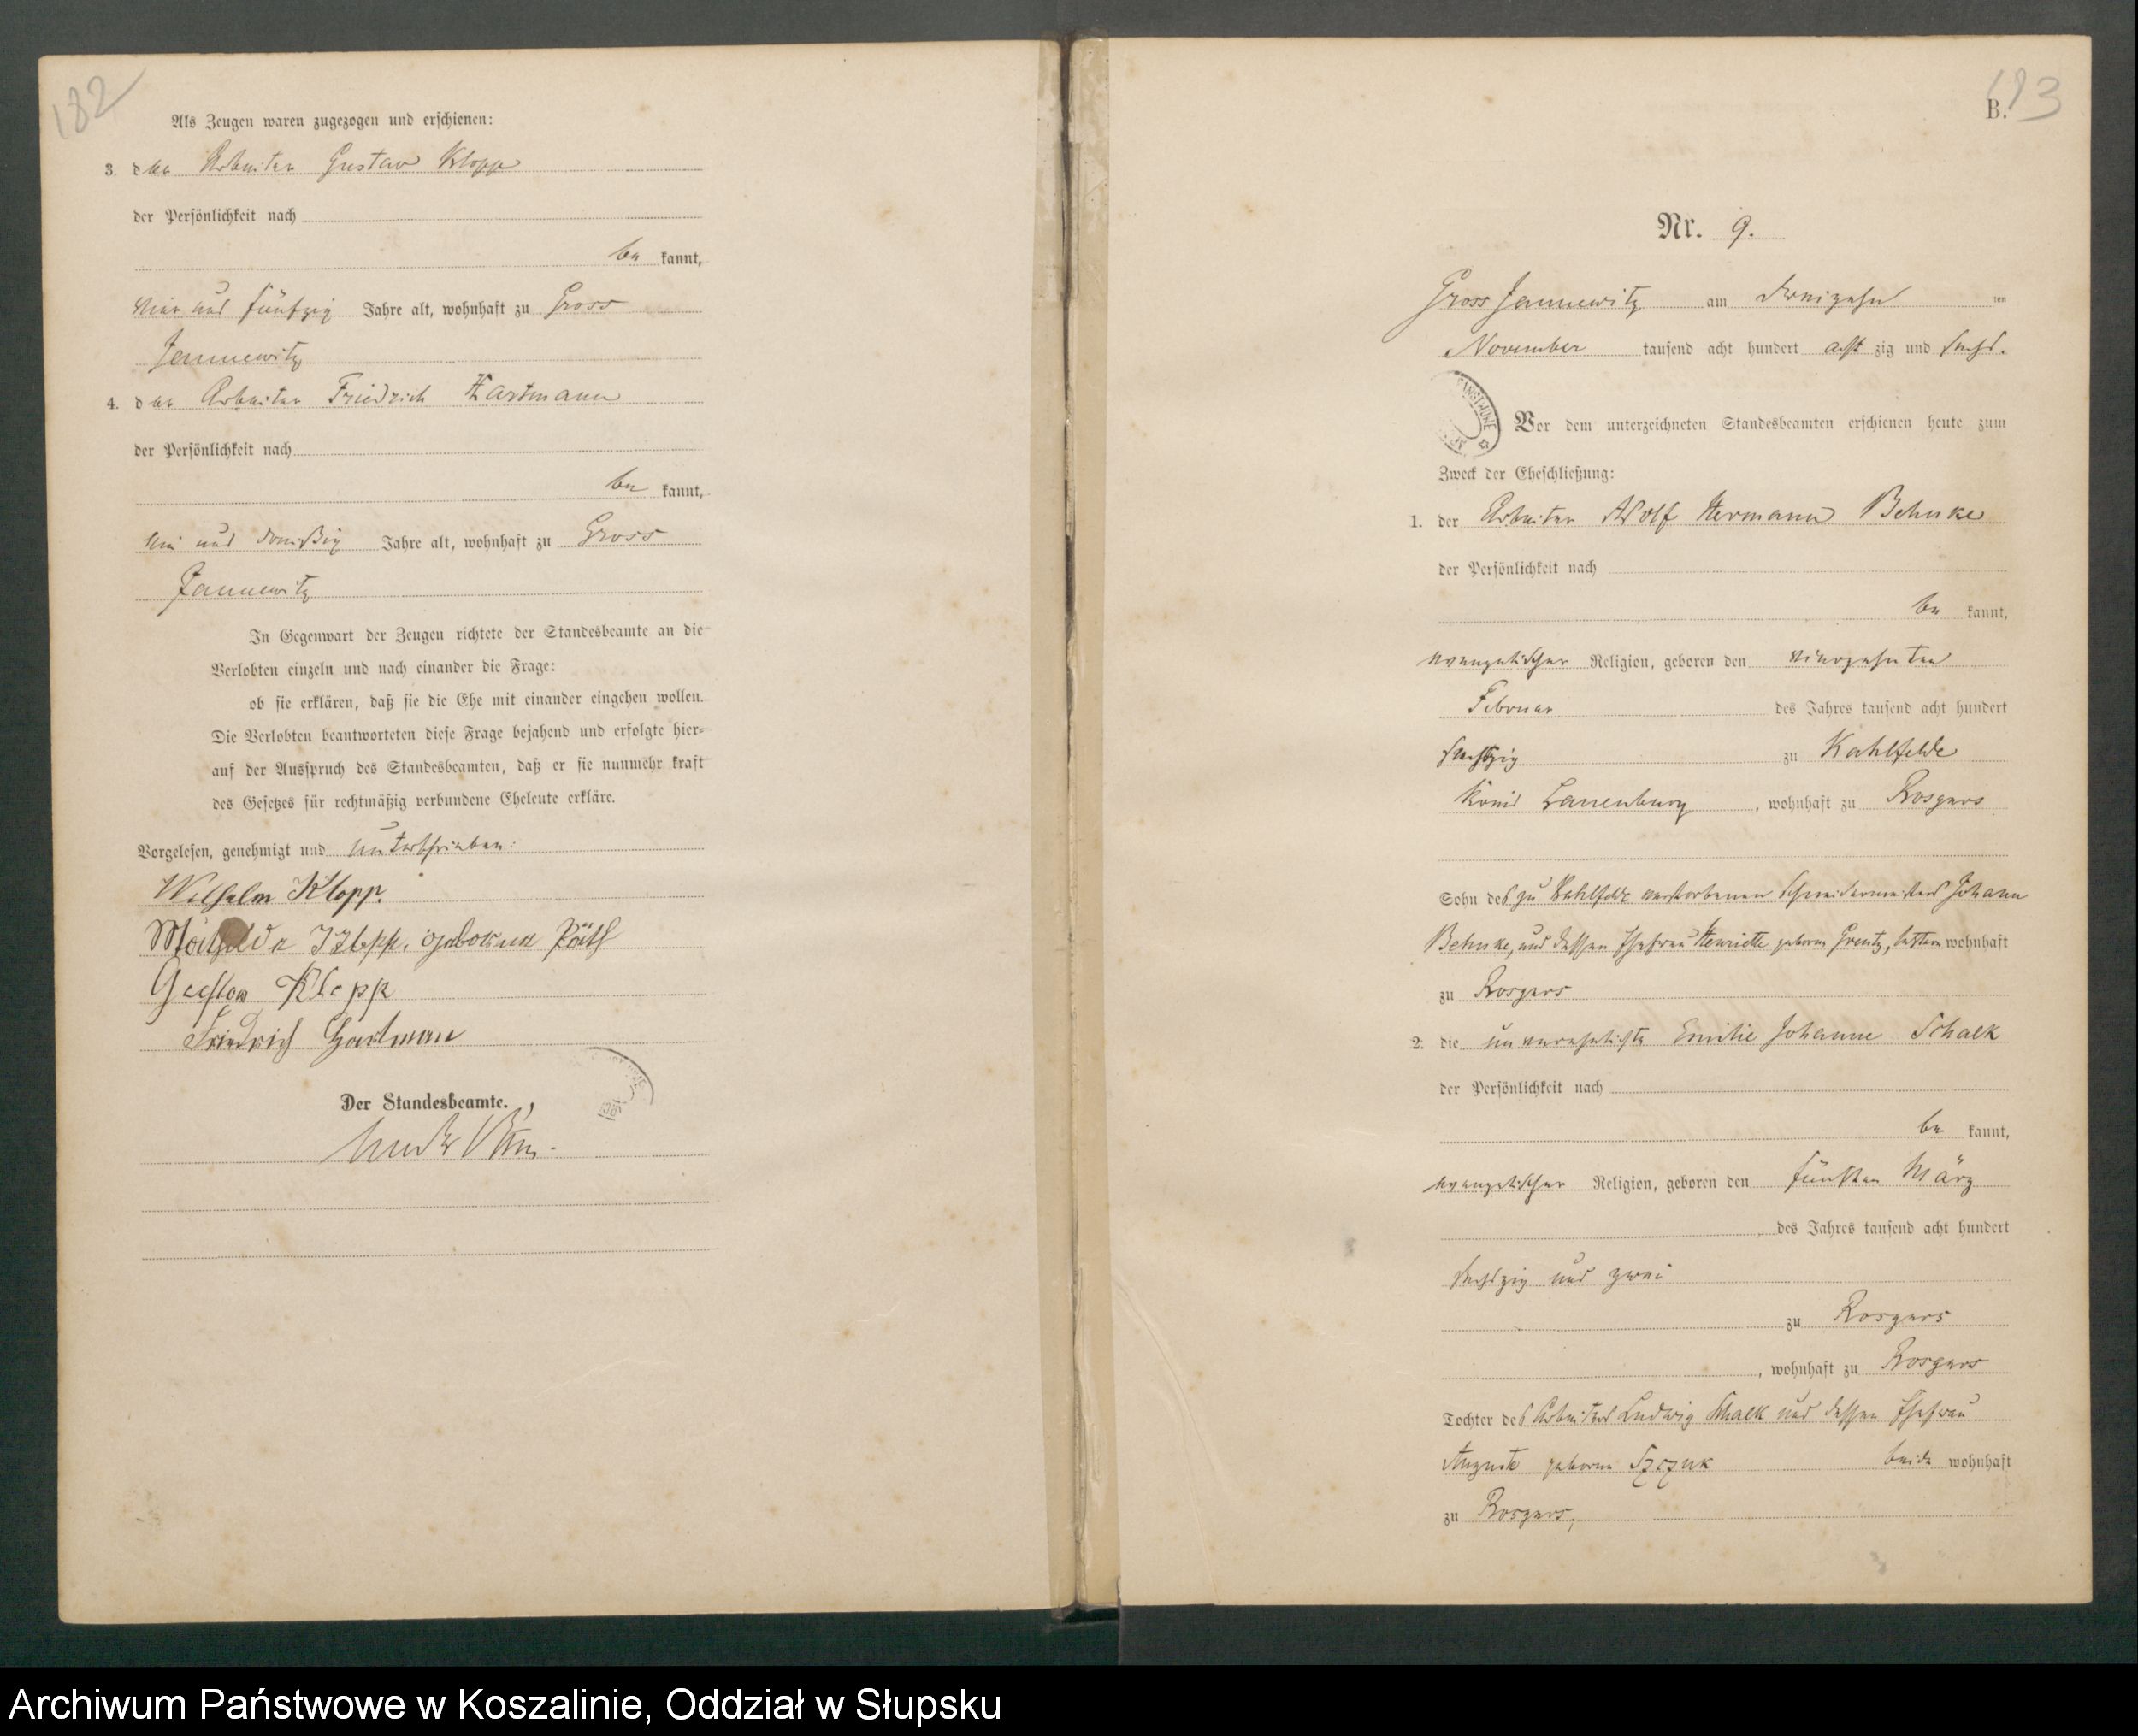 182
Als Zeugen waren zugezogen und erschienen:
3. der Arbeiter Gustav Klopp
der Persönlichkeit nach
be kannt,
vier und fünfzig Jahre alt, wohnhaft zu Gross
Jannewitz
4. der Arbeiter Friedrich Hartmann
der Persönlichkeit nach
be kannt,
ein und dreißig Jahre alt, wohnhaft zu Gross
Jannewitz
In Gegenwart der Zeugen richtete der Standesbeamte an die
Verlobten einzeln und nach einander die Frage:
ob sie erklären, daß sie die Ehe mit einander eingehen wollen.
Die Verlobten beantworteten diese Frage bejahend und erfolgte hier-
auf der Ausspruch des Standesbeamten, daß er sie nunmehr kraft
des Gesetzes für rechtmäßig verbundene Eheleute erkläre.
Vorgelesen, genehmigt und unterschrieben:
Wilhelm Klopp.
Mathilde Klopp, geborene Päth
Gustav Klopp
Friedrich Hartman
Der Standesbeamte.
183
B.
Nr. 9.
Gross Jannewitz am dreizehn ten
November tausend acht hundert acht zig und sechs.
Vor dem unterzeichneten Standesbeamten erschienen heute zum
Zweck der Eheschließung:
1. der Arbeiter Adolf Hermann Behnke
der Persönlichkeit nach
be kannt,
evangelischer Religion, geboren den vierzehnten
Februar des Jahres tausend acht hundert
sechzig zu Kahlfelde
Kreis Lauenburg, wohnhaft zu Rosgars
Sohn des zu Kahlfelde verstorbenen Schneidermeisters Johann
Behnke, und dessen Ehefrau Henriette geborne Grentz, letztere wohnhaft
zu Rosgars
2. die unverehelichte Emilie Johanne Schalk
der Persönlichkeit nach
be kannt,
evangelischer Religion, geboren den fünften März
des Jahres tausend acht hundert
sechszig und zwei
zu Rosgars
, wohnhaft zu Rosgars
Tochter des Arbeiters Ludwig Schalk und dessen Ehefrau
Auguste geborne beide wohnhaft
zu Rosgars,
Archiwum Państwowe w Koszalinie, Oddział w Słupsku